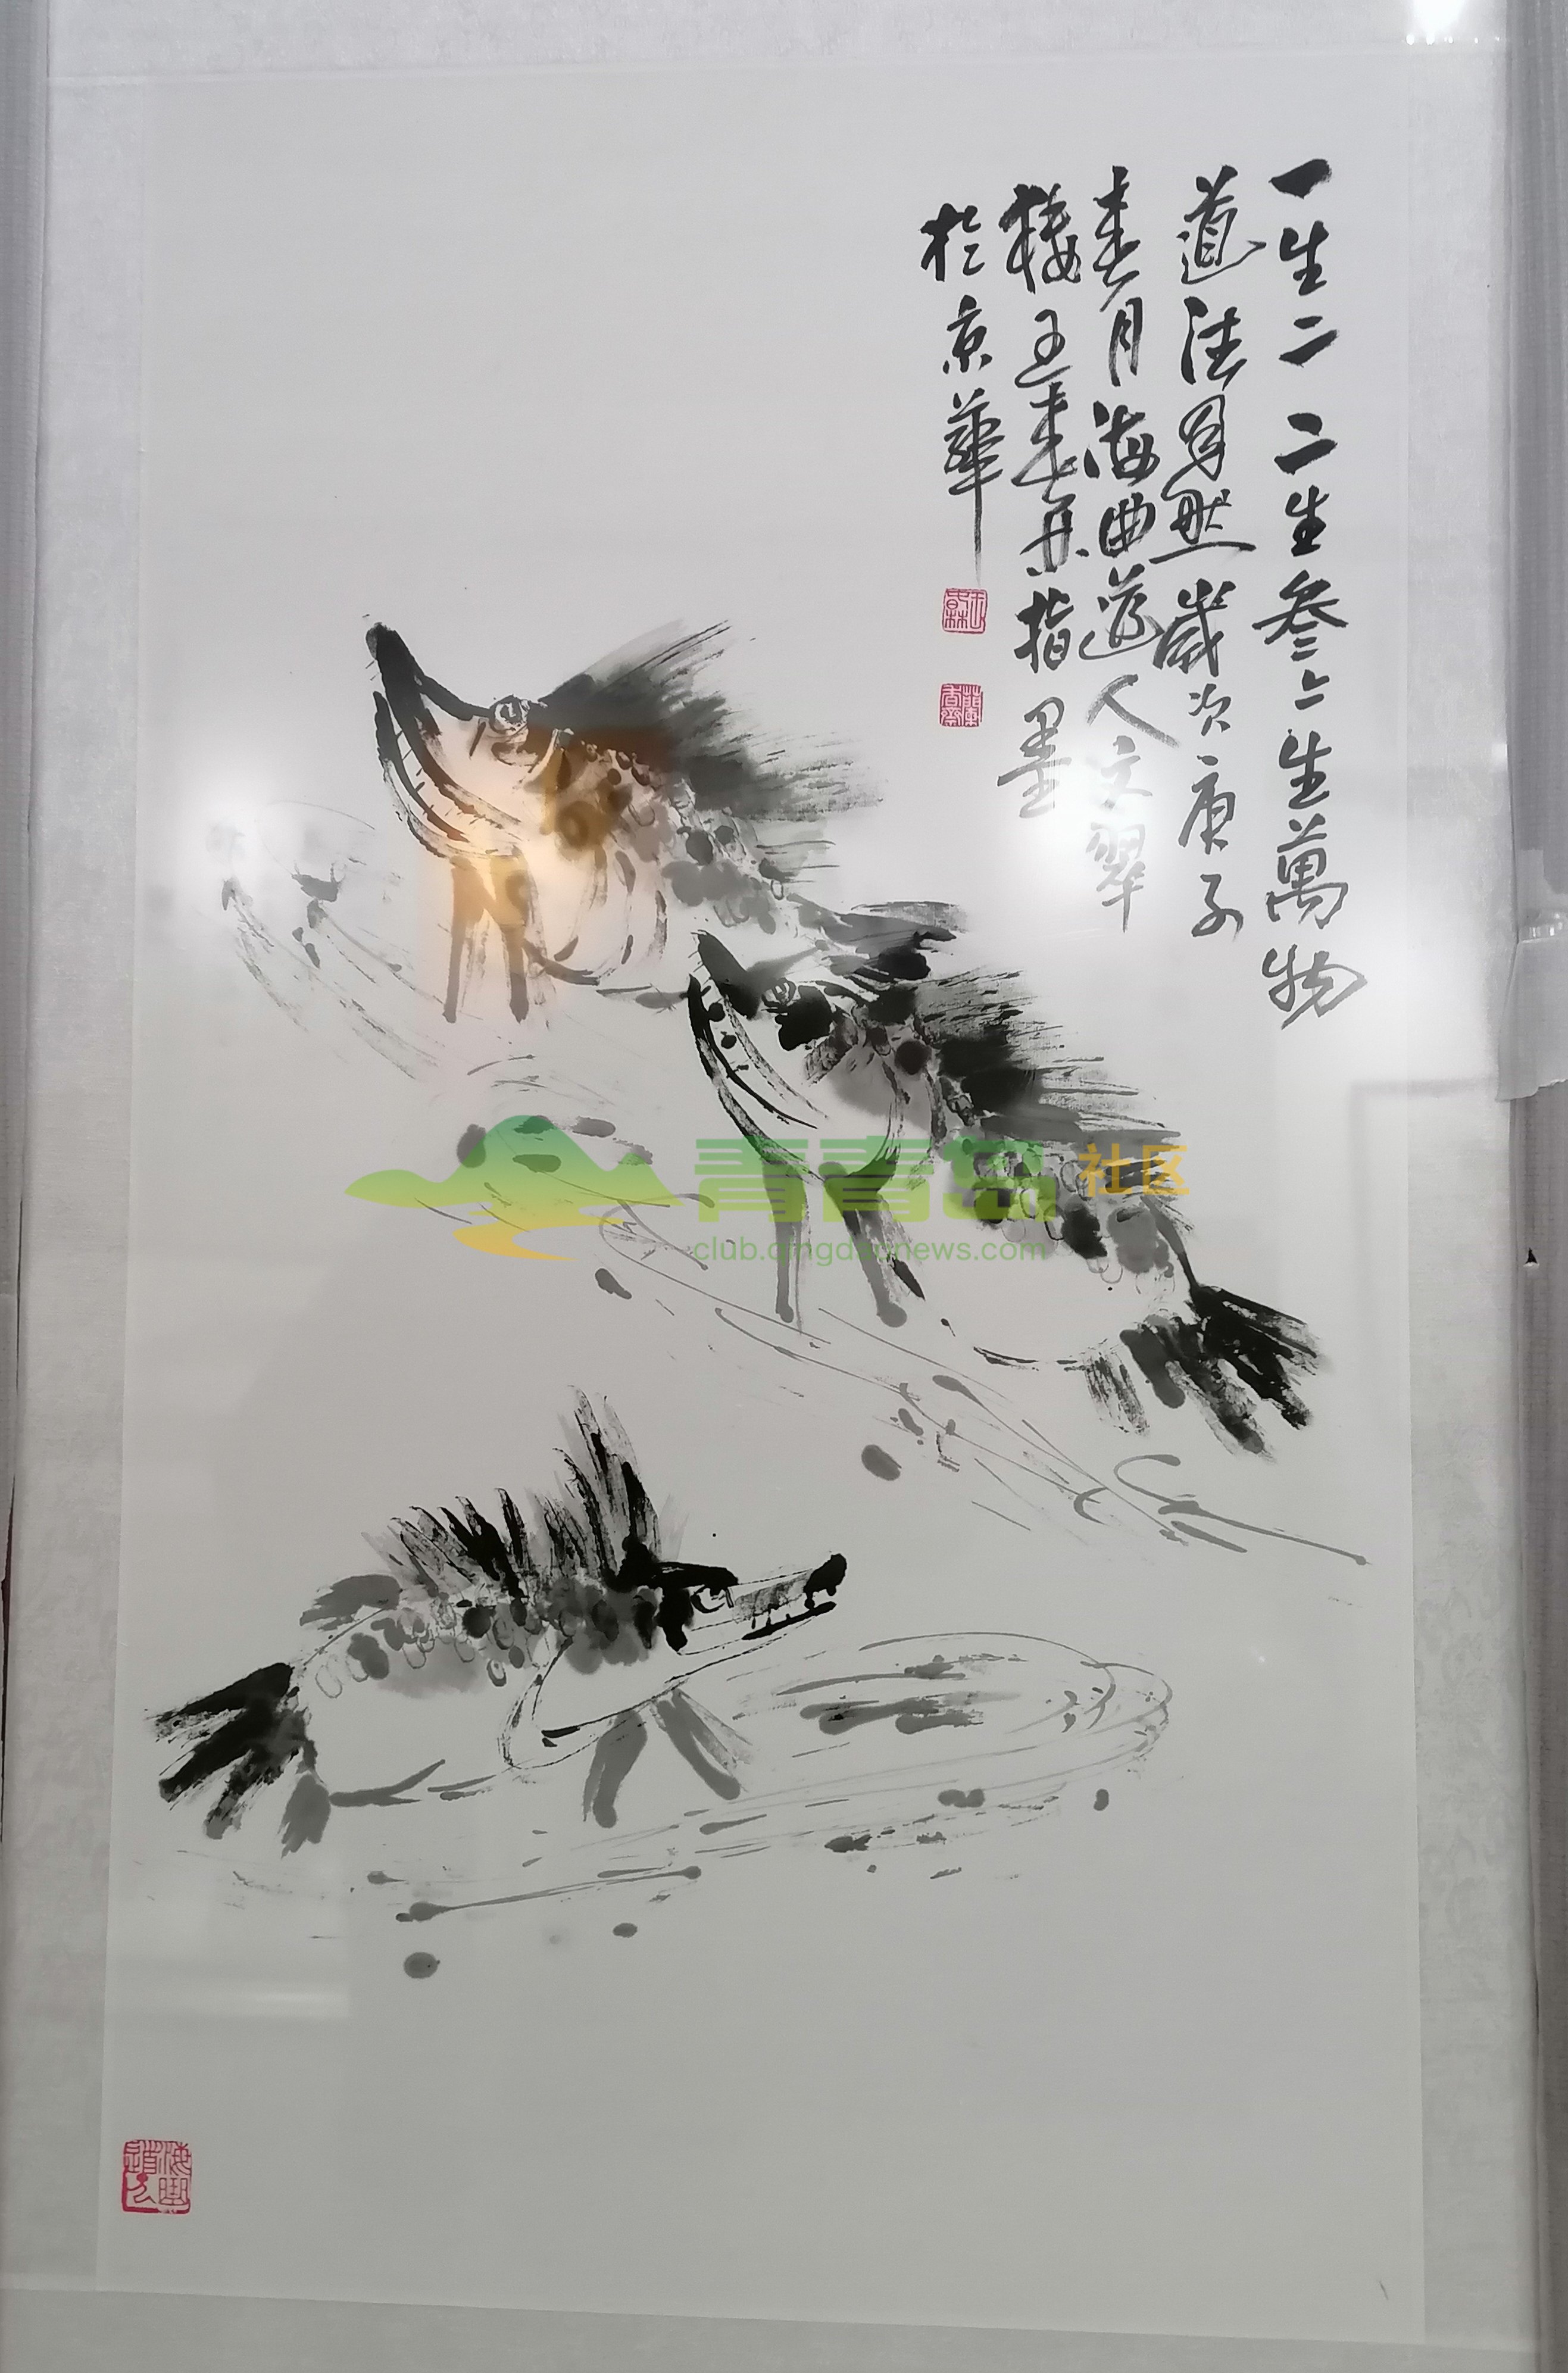 一生二二生叁六生萬物
道法自然歲次庚子
春月海曲道人文翠
樓王春京指墨
於京華
海曲道人
青青岛社区
club.qingdaonews.com